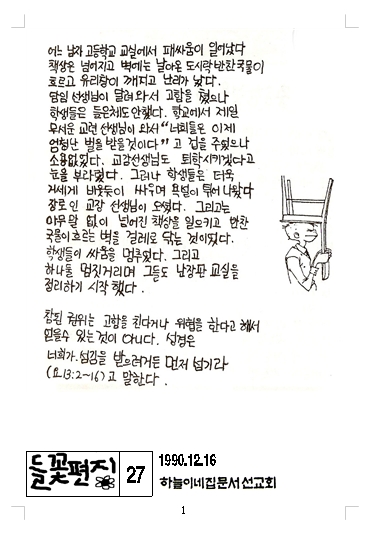 어느 남자 고등학교 교실에서 패싸움이 일어났다
책상은 넘어지고 벽에는 날아온 도시락 반찬국물이
흐르고 유리창이 깨지고 난리가 났다.
담임 선생님이 달려 와서 고함을 쳤으나
학생들은 들은체도 안했다. 학교에서 제일
무서운 교련 선생님이 와서 “너희들은 이제
엄청난 벌을 받을것이다” 고 겁을 주었으나
소용없었다. 교감선생님도 퇴학시키겠다고
눈을 부라렸다. 그러나 학생들은 더욱
거세게 싸우며 욕설이 튀어 나왔다
장로인 교장 선생님이 오셨다. 그리고는
아무말 없이 넘어진 책상을 일으키고 반찬
국물이 흐르는 벽을 걸레로 닦는 것이었다.
학생들이 싸움을 멈추었다. 그리고
하나둘 멈짓거리며 그들도 난장판 교실을
정리하기 시작 했다.
참된 권위는 고함을 친다거나 위협을 한다고 해서
얻을수 있는것이 아니다. 성경은
너희가 섬김을 받으려거든 먼저 섬기라
(요13:2~16)고 말한다.
들꽃편지
27
1990.12.16
하늘이네집문서선교회
1